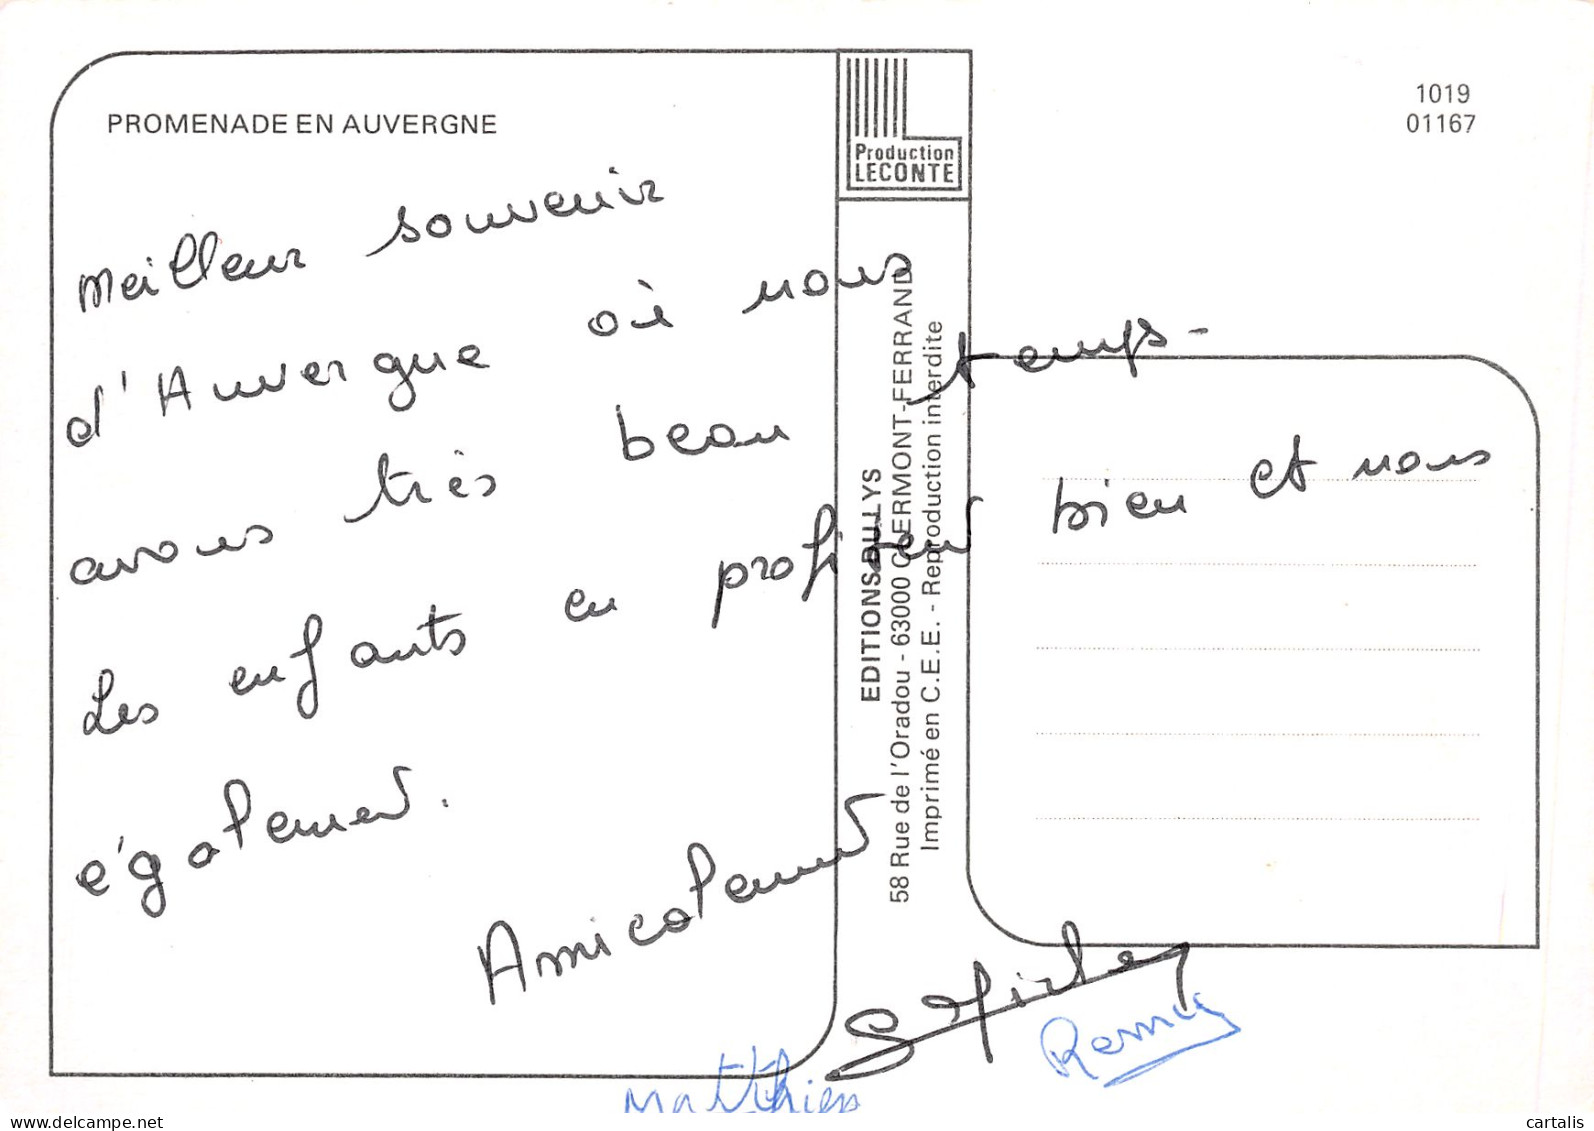 PROMENADE EN AUVERGNE
1019
01167
Production
LECONTE
Meilleur souvenir
d'Auvergne où nous
avons très beau temps-
Les enfants en profitent bien et nous
également.
Amicalement
Remy
Matthieu
EDITIONS BULLYS
58 Rue de l'Oradou - 63000 CLERMONT-FERRAND
Imprimé en C.E.E. - Reproduction interdite
delcampe.net
cartalis